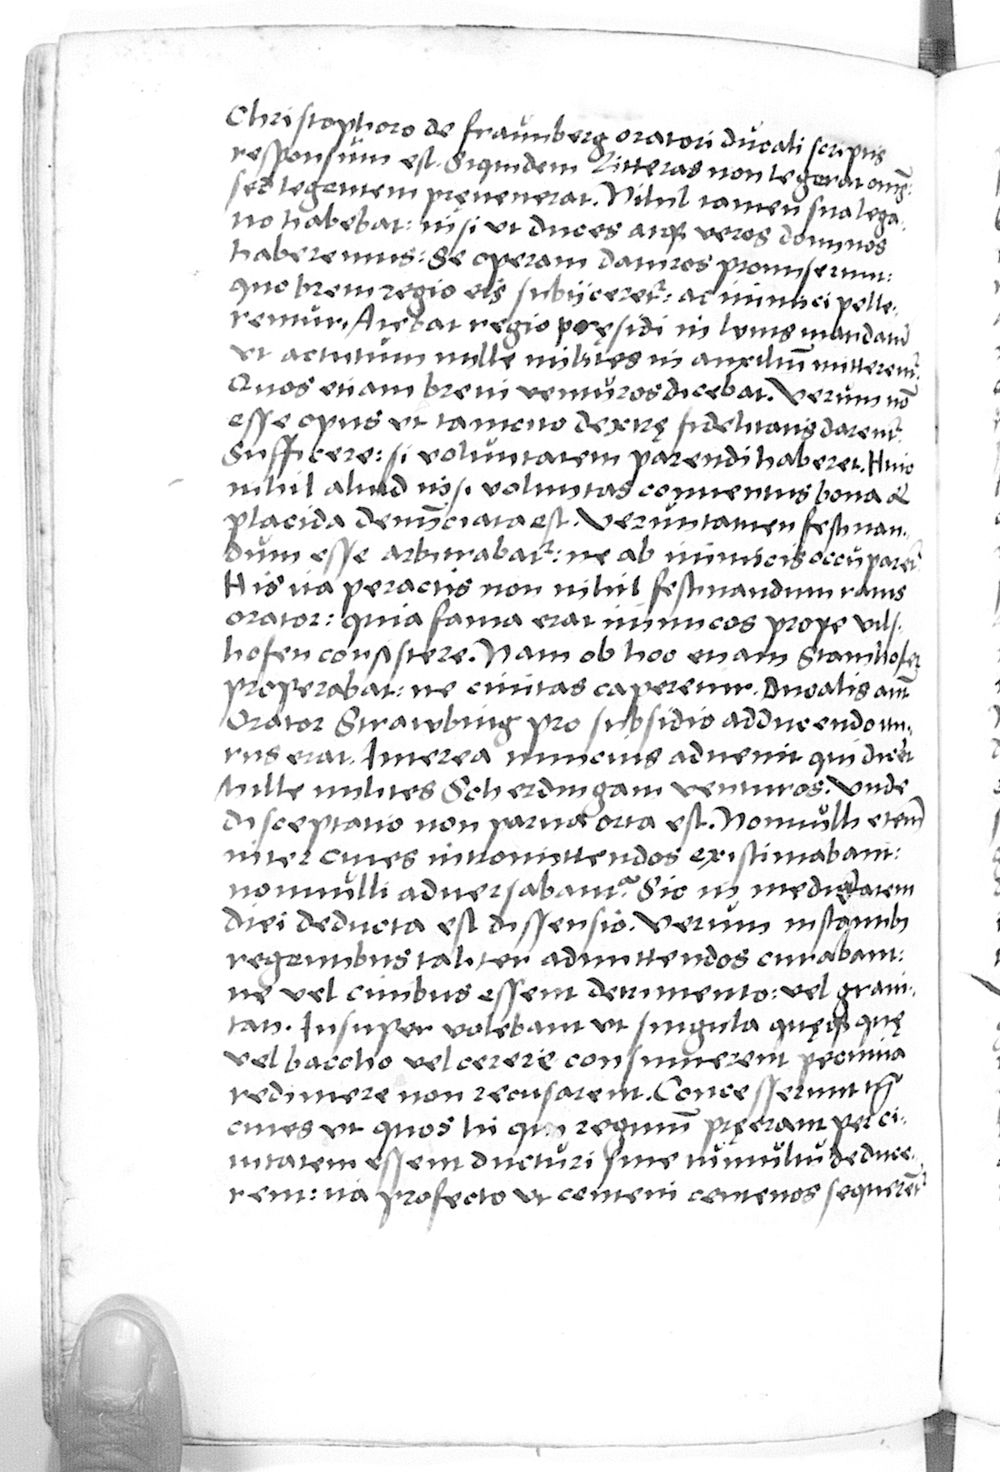 Christophoro de fraunberg oratori ducali scriptis
responsum est. Siquidem litteras non legerat om̄s:
sed legentem pręvenerat. Nihil tamen sua lega-
tio habebat: nisi ut duces atqꝫ veros dominos
haberemus: Se operam daturos promiserunt:
quo brevi regio eis subijceret᷑: ac inimici pelle-
rentur. Aiebat regio pręsidi in lũtis mandatū
ut actutum mille milites in auxiliū mitterent᷑.
Quos etiam brevi venturos dicebat. Verum nō
esse opus ut tam cito dextrę fidelitatis darent᷑
Sufficere: si voluntatem parendi haberet. Huic
nihil aliud nisi voluntas conventus bona &
placida denūciata est. Veruntamen festinan-
dum esse arbitrabat᷑: ne ab inimicis occuparet᷑
His ita peractis non nihil festinandum ratus
orator: quia fama erat inimicos prope vils-
hofen consistere. Nam ob hoc etiam Stamhofer
properabat: ne civitas caperetur. Ducalis autē
Orator Strawbing pro subsidio adducendo itu-
rus erat. Interea nuncius advenit qui dicēt
Mille milites Scherdingam venturos. Unde
disceptatio non parva orta est. Nonnulli etenī
inter cives intromittendos existimabant:
nonnulli adversabant᷑. Sic in medietatem
diei deducta est dissensio. Verum instantibꝫ
regentibus taliter admittendos curabant:
ne vel civibus essent detrimento: vel gravi-
tati. Insuper volebant ut singula quęqꝫ quę
vel baccho vel cerere consumerent pecunia
redimere non recusarent. Concesserunt tn̄
cives ut quos hi qui regimī pręerant per ci-
vitatem essent ducturi sine tumultu deduce-
rent: ita profecto ut centeni centenos sequerent᷑